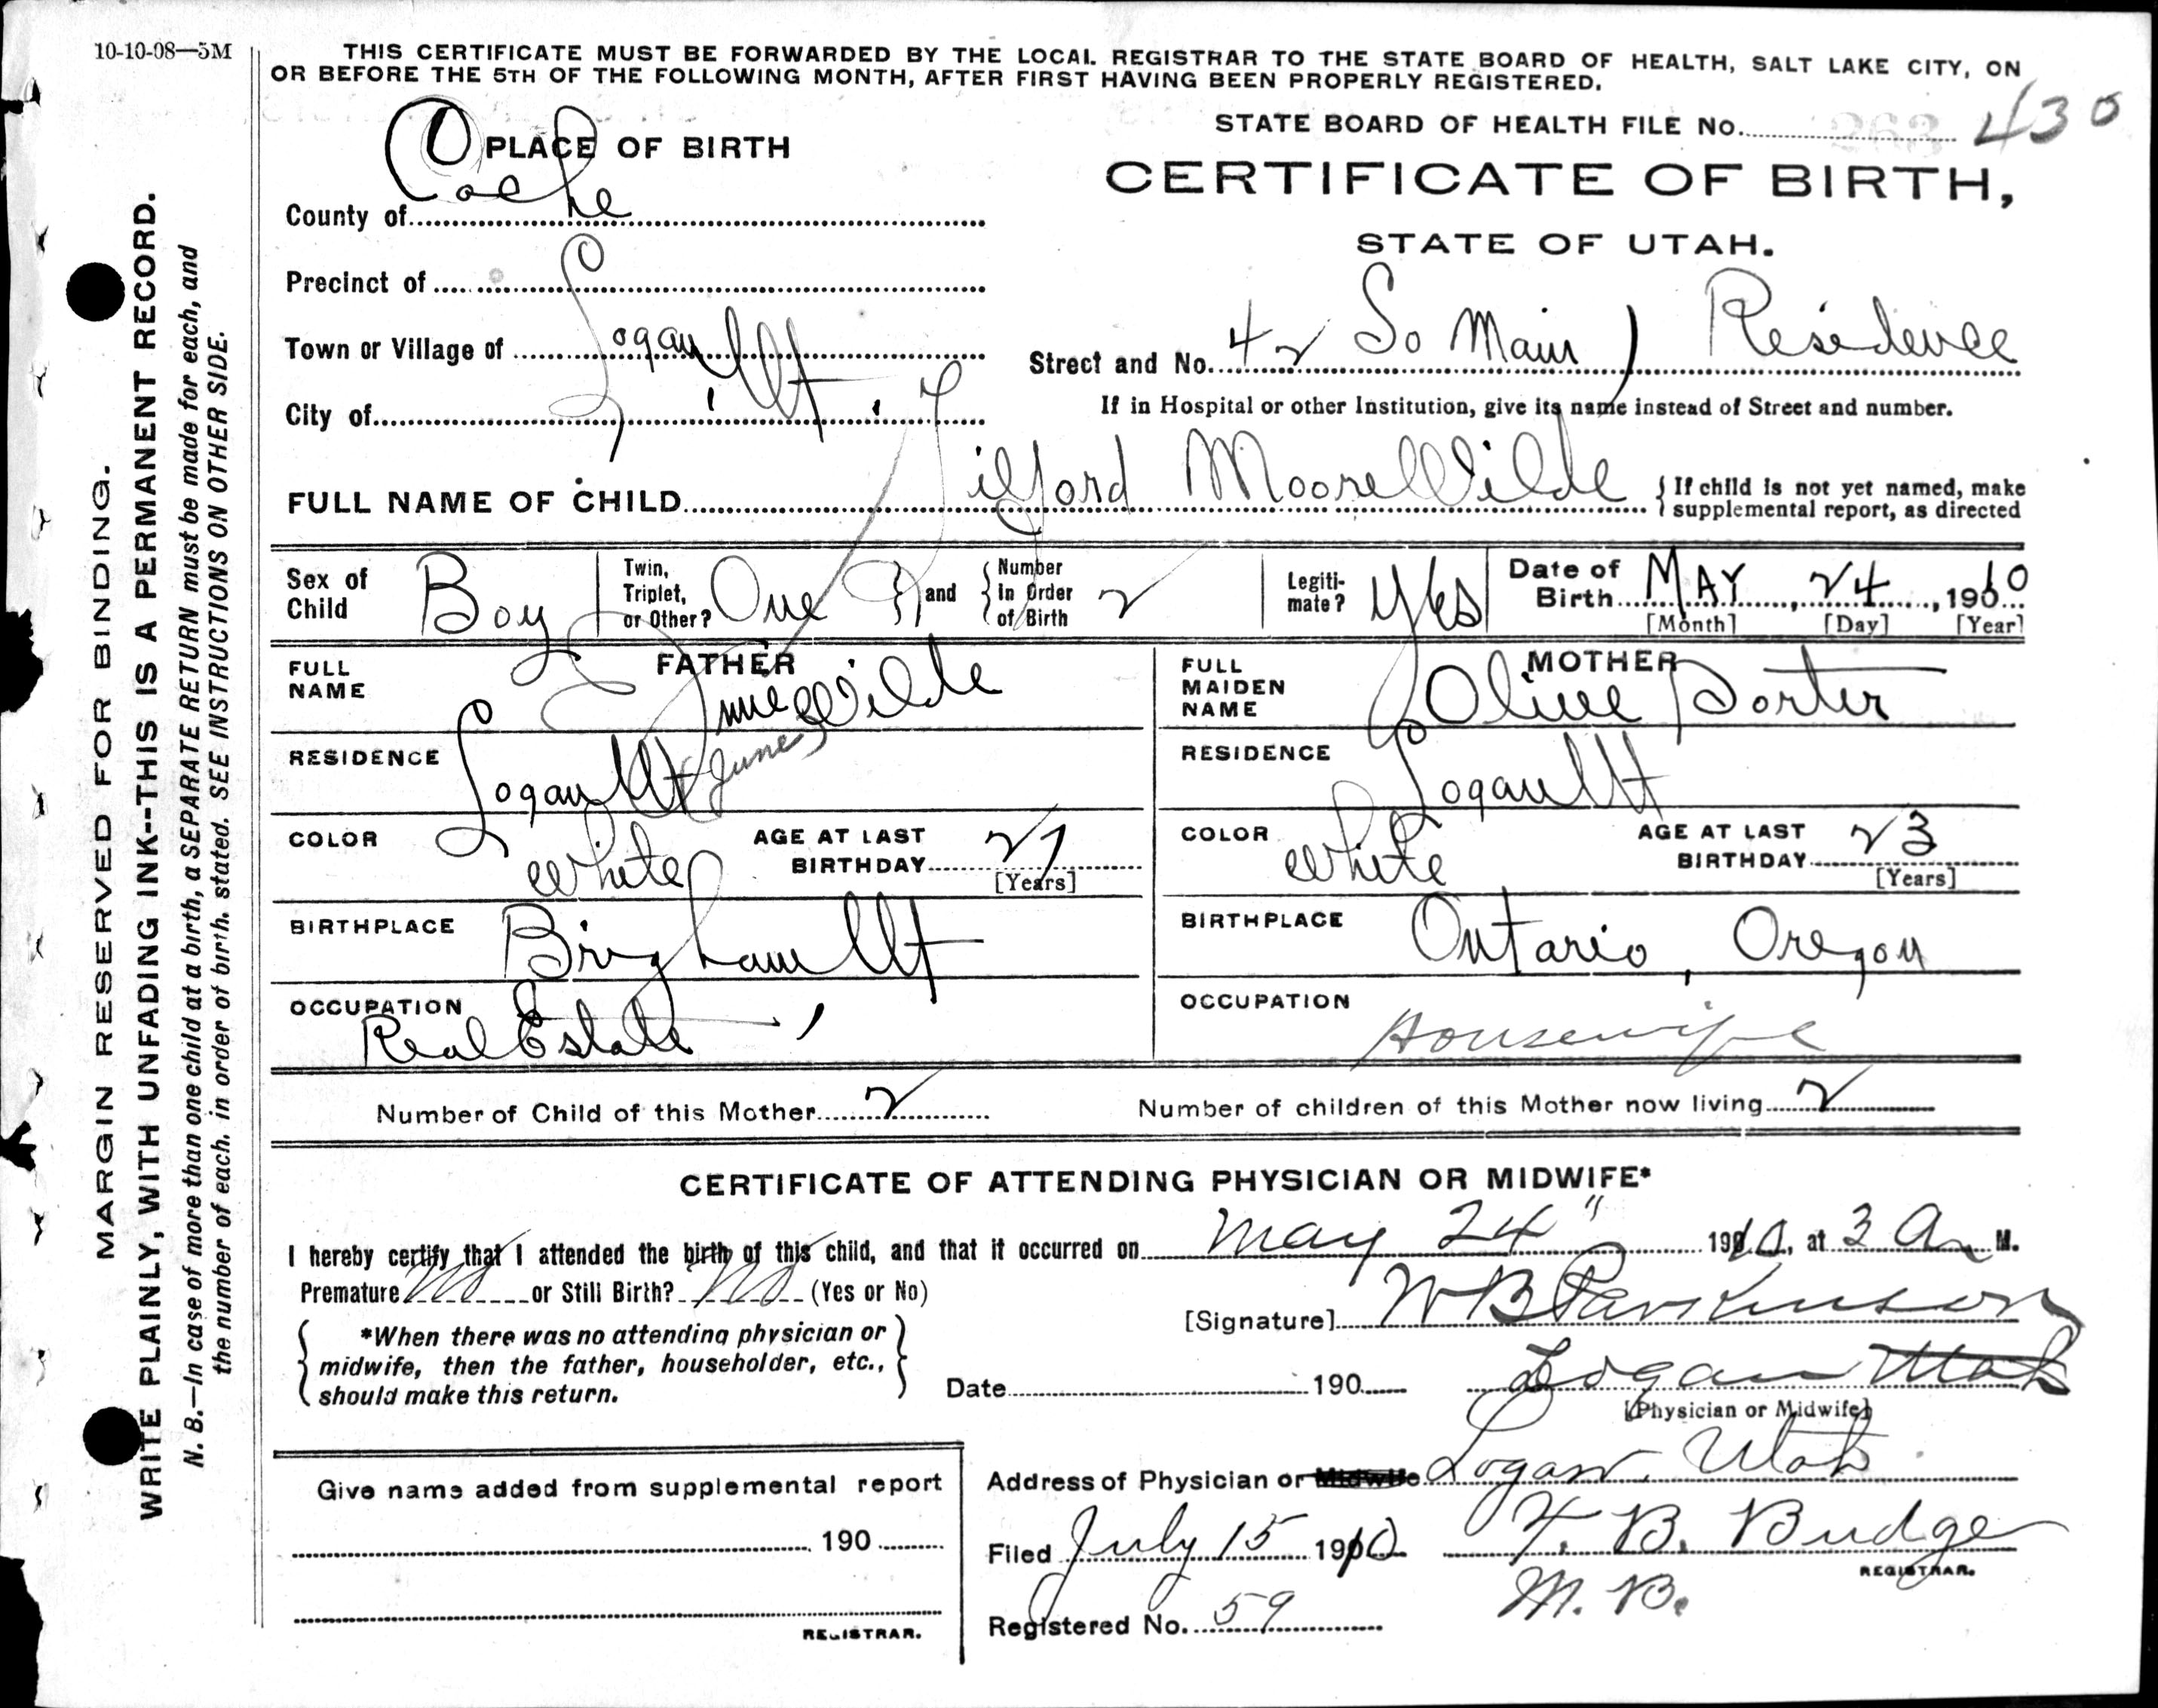 10-10-08—5M
THIS CERTIFICATE MUST BE FORWARDED BY THE LOCAL REGISTRAR TO THE STATE BOARD OF HEALTH, SALT LAKE CITY, ON
OR BEFORE THE 5TH OF THE FOLLOWING MONTH, AFTER FIRST HAVING BEEN PROPERLY REGISTERED.
STATE BOARD OF HEALTH FILE No. 430
PLACE OF BIRTH
CERTIFICATE OF BIRTH,
STATE OF UTAH.
County of Cache
Precinct of
Town or Village of Logan, Ut.
City of
Street and No. 42 So Main, Residence
If in Hospital or other Institution, give its name instead of Street and number.
FULL NAME OF CHILD Tilford Moore Wilde
{If child is not yet named, make
supplemental report, as directed
Sex of Child Boy
Twin, Triplet, or Other? One
and
Number In Order of Birth 2
Legitimate? Yes
Date of Birth MAY, 24, 1910
[Month] [Day] [Year]
FATHER
FULL NAME Junie Wilde
(June)
RESIDENCE Logan Ut
COLOR White
AGE AT LAST BIRTHDAY 27
[Years]
BIRTHPLACE Brigham Ut
OCCUPATION Real Estate
MOTHER
FULL MAIDEN NAME Olive Porter
RESIDENCE Logan Ut
COLOR White
AGE AT LAST BIRTHDAY 23
[Years]
BIRTHPLACE Ontario, Oregon
OCCUPATION Housewife
Number of Child of this Mother 2
Number of children of this Mother now living 2
CERTIFICATE OF ATTENDING PHYSICIAN OR MIDWIFE*
I hereby certify that I attended the birth of this child, and that it occurred on May 24" 1910, at 3 A. M.
Premature No or Still Birth? No (Yes or No)
[Signature] W B Parkinson
*When there was no attending physician or
midwife, then the father, householder, etc.,
should make this return.
Date 190
Logan Utah
[Physician or Midwife]
Give name added from supplemental report
190
REGISTRAR.
Address of Physician or Midwife Logan, Utah
Filed July 15 1910
T. B. Budge
REGISTRAR.
M. B.
Registered No. 59
MARGIN RESERVED FOR BINDING.
WRITE PLAINLY, WITH UNFADING INK--THIS IS A PERMANENT RECORD.
N. B.—In case of more than one child at a birth, a SEPARATE RETURN must be made for each, and
the number of each, in order of birth, stated. SEE INSTRUCTIONS ON OTHER SIDE.